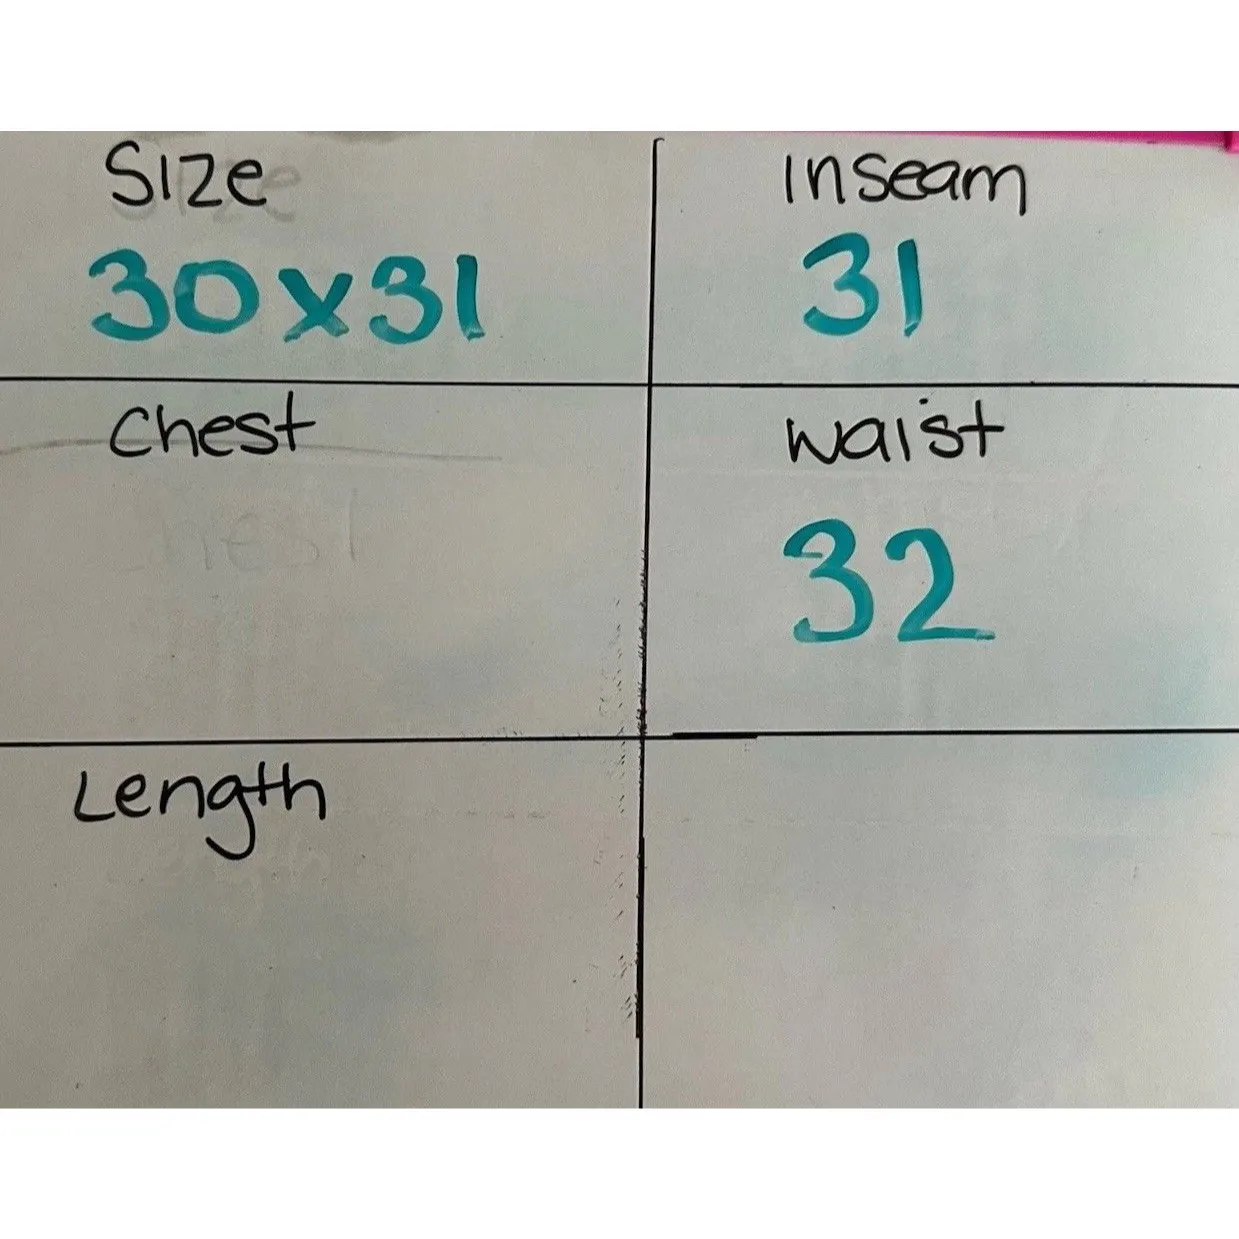 Size
30x31
inseam
31
Chest
waist
32
Length